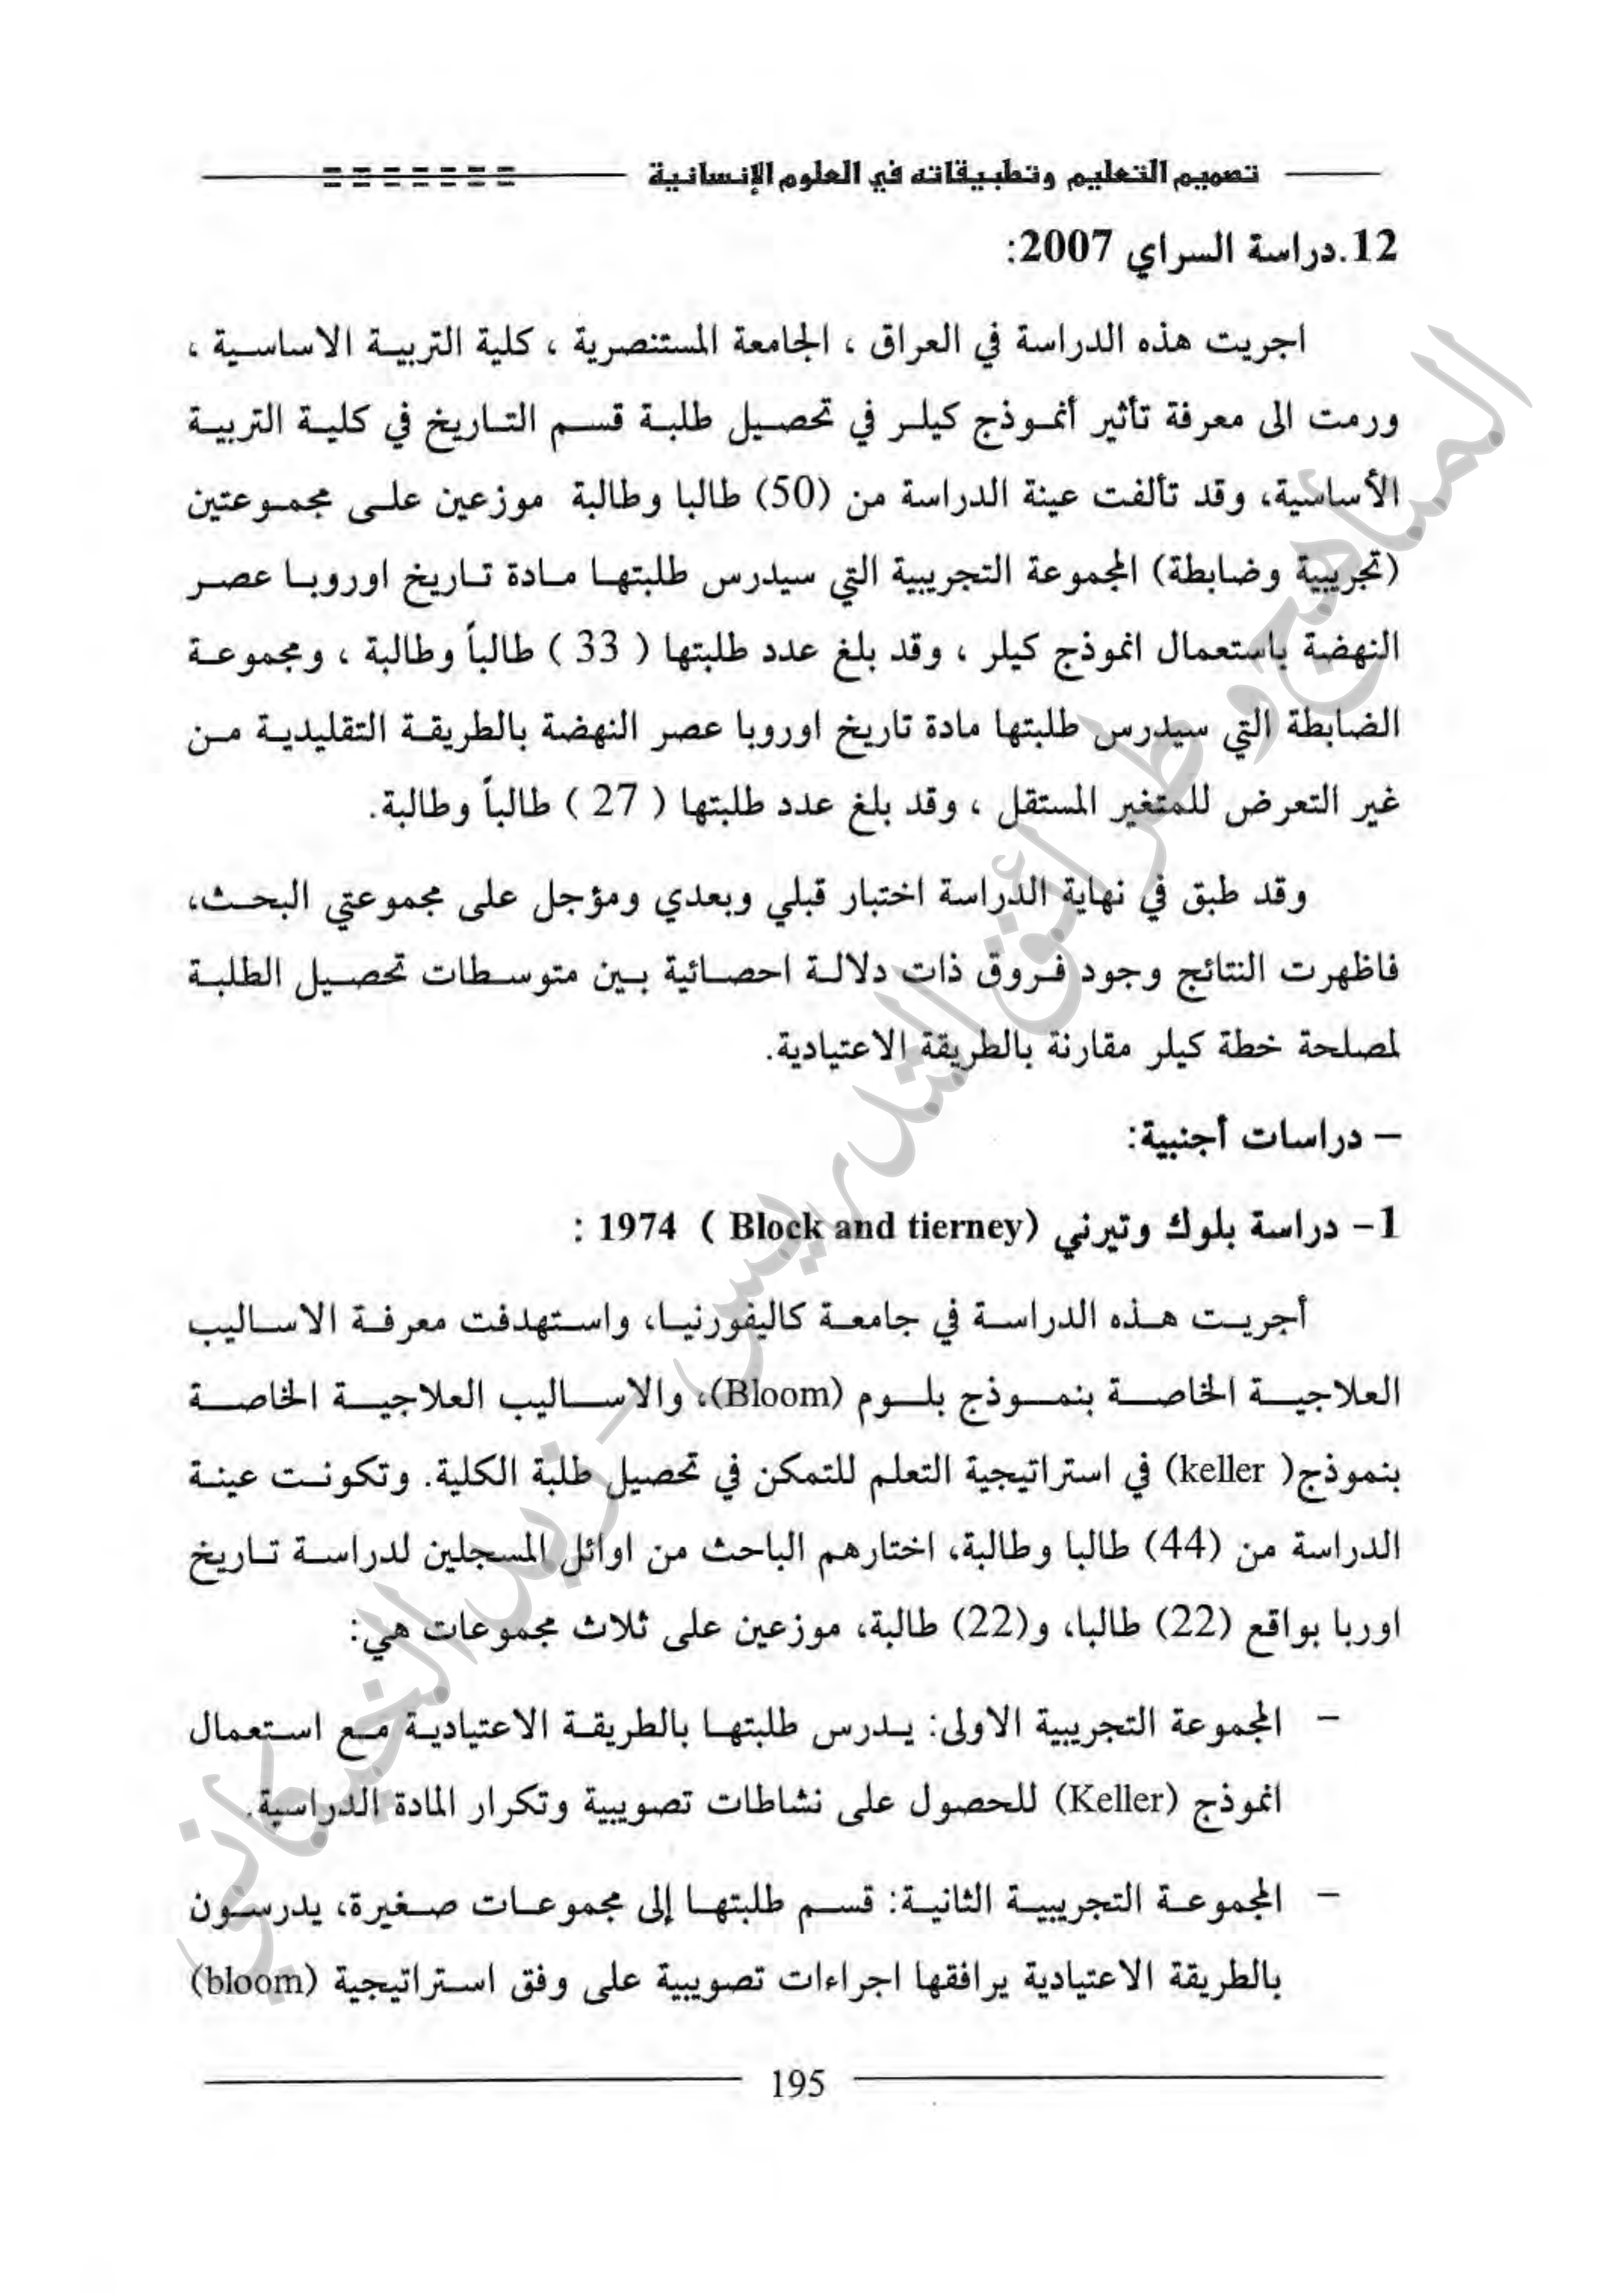 تصميم التعليم وتطبيقاته في العلوم الإنسانية
12.دراسة السراي 2007:
اجريت هذه الدراسة في العراق ، الجامعة المستنصرية ، كلية التربية الاساسية ،
ورمت الى معرفة تأثير أنموذج كيلر في تحصيل طلبة قسم التاريخ في كلية التربية
الأساسية، وقد تألفت عينة الدراسة من (50) طالبا وطالبة موزعين على مجموعتين
(تجريبية وضابطة) المجموعة التجريبية التي سيدرس طلبتها مادة تاريخ اوروبا عصر
النهضة باستعمال انموذج كيلر ، وقد بلغ عدد طلبتها ( 33 ) طالباً وطالبة ، ومجموعة
الضابطة التي سيدرس طلبتها مادة تاريخ اوروبا عصر النهضة بالطريقة التقليدية من
غير التعرض للمتغير المستقل ، وقد بلغ عدد طلبتها ( 27 ) طالباً وطالبة.
وقد طبق في نهاية الدراسة اختبار قبلي وبعدي ومؤجل على مجموعتي البحث،
فاظهرت النتائج وجود فروق ذات دلالة احصائية بين متوسطات تحصيل الطلبة
لمصلحة خطة كيلر مقارنة بالطريقة الاعتيادية.
– دراسات أجنبية:
1- دراسة بلوك وتيرني (Block and tierney ) 1974 :
أجريت هذه الدراسة في جامعة كاليفورنيا، واستهدفت معرفة الاساليب
العلاجية الخاصة بنموذج بلوم (Bloom)، والاساليب العلاجية الخاصة
بنموذج( keller) في استراتيجية التعلم للتمكن في تحصيل طلبة الكلية. وتكونت عينة
الدراسة من (44) طالبا وطالبة، اختارهم الباحث من اوائل المسجلين لدراسة تاريخ
اوربا بواقع (22) طالبا، و(22) طالبة، موزعين على ثلاث مجموعات هي:
– المجموعة التجريبية الاولى: يدرس طلبتها بالطريقة الاعتيادية مع استعمال
انموذج (Keller) للحصول على نشاطات تصويبية وتكرار المادة الدراسية.
– المجموعة التجريبية الثانية: قسم طلبتها إلى مجموعات صغيرة، يدرسون
بالطريقة الاعتيادية يرافقها اجراءات تصويبية على وفق استراتيجية (bloom)
195
المناهج وطرائق التدريس - زيد الخيكاني